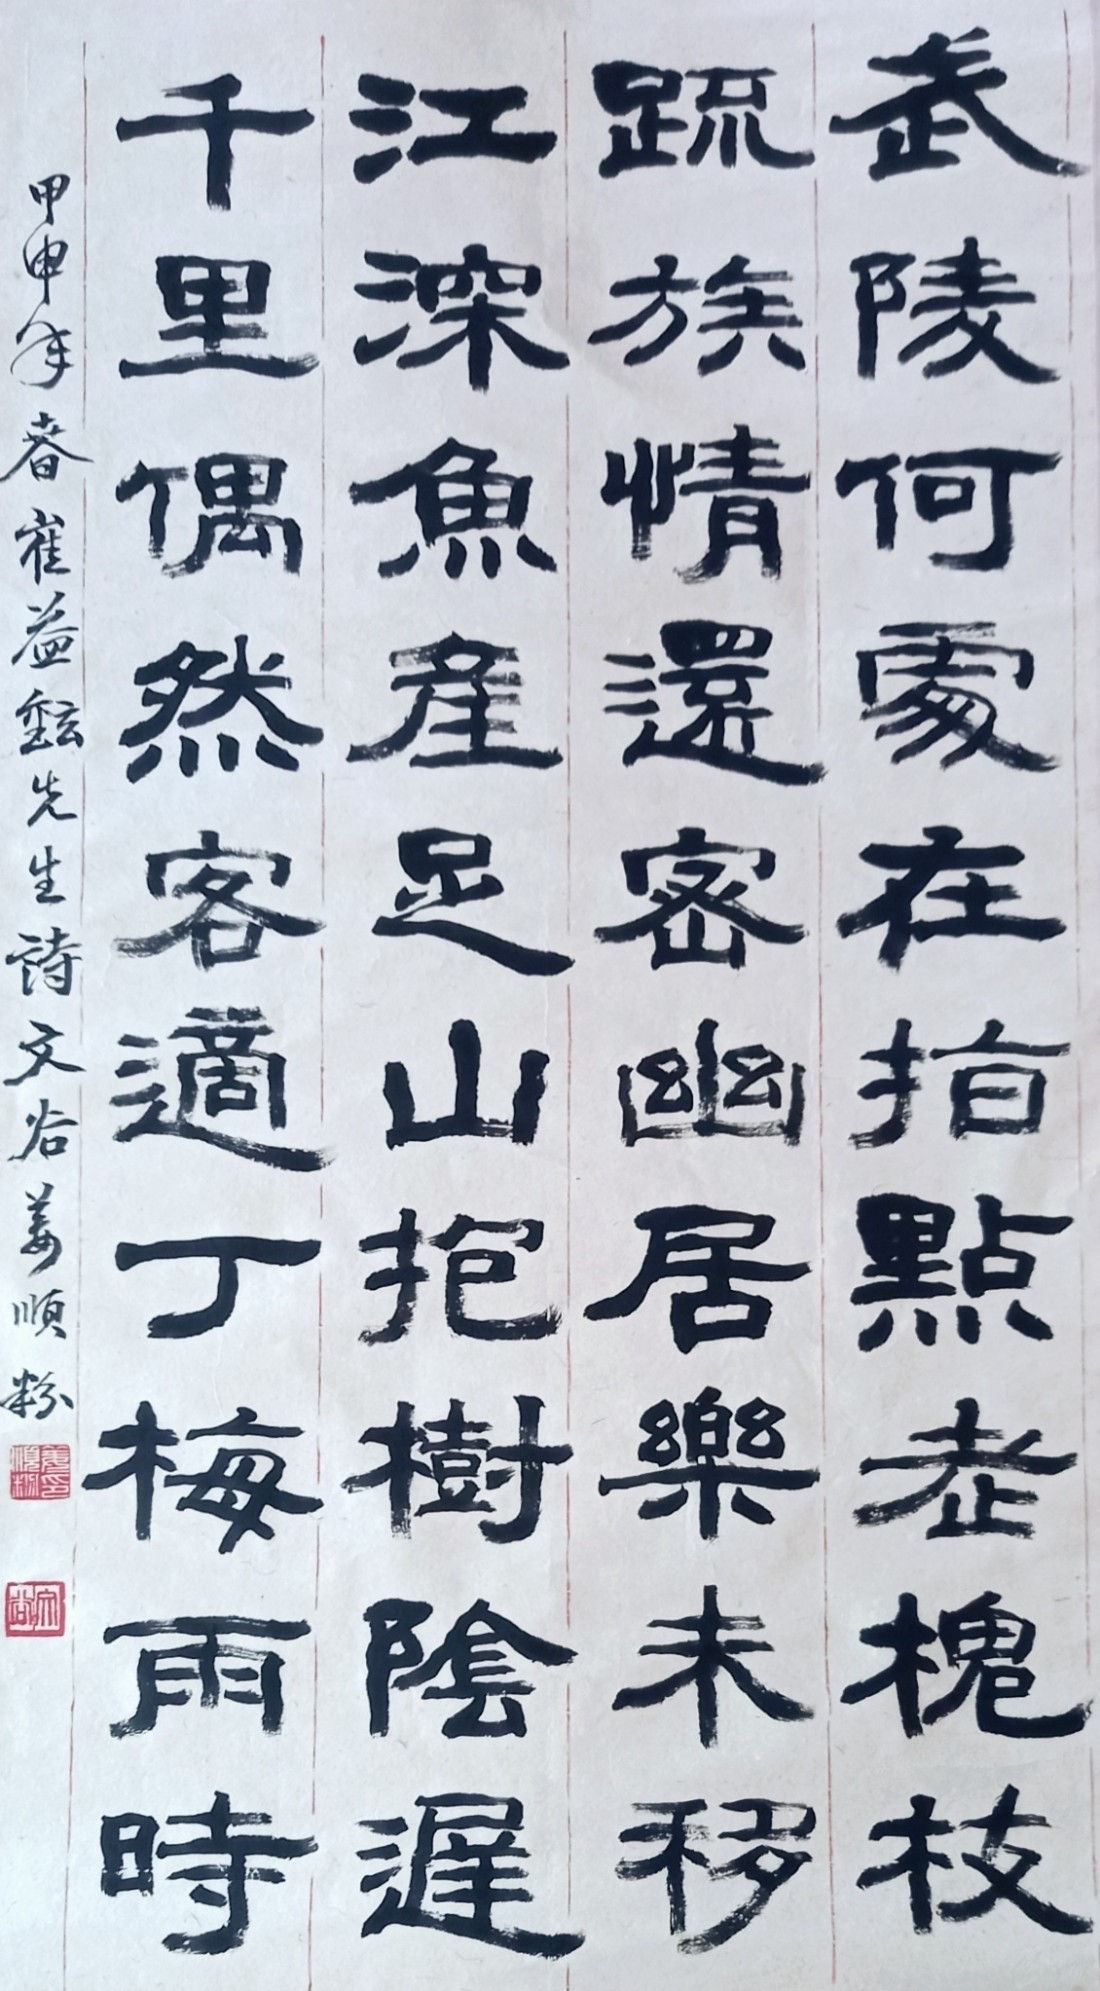 武陵何處在指點老槐枝
疏族情還密幽居樂未移
江深魚産足山抱樹陰遲
千里偶然客適丁梅雨時
甲申年春崔益鉉先生詩文谷姜順粉